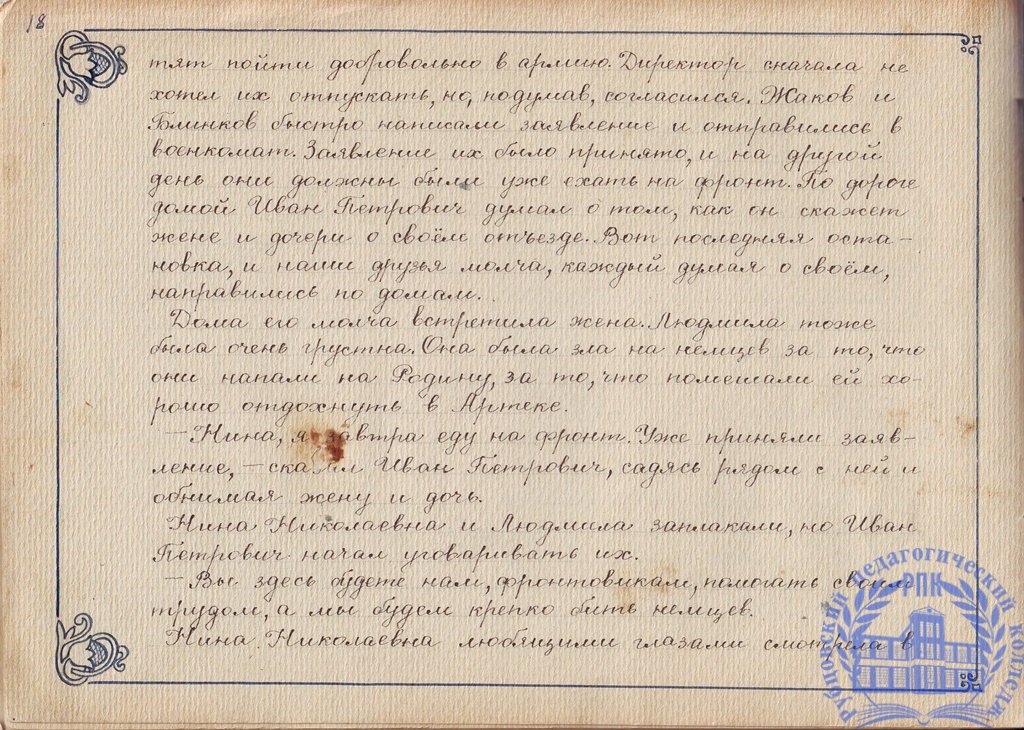 18
тят пойти добровольно в армию. Директор сначала не
хотел их отпускать, но, подумав, согласился. Жаков и
Блинков быстро написали заявление и отправились в
военкомат. Заявление их было принято, и на другой
день они должны были уже ехать на фронт. По дороге
домой Иван Петрович думал о том, как он скажет
жене и дочери о своём отъезде. Вот последняя оста-
новка, и наши друзья молча, каждый думая о своём,
направились по домам.
Дома его молча встретила жена. Людмила тоже
была очень грустна. Она была зла на немцев за то, что
они напали на Родину, за то, что помешали ей хо-
рошо отдохнуть в Артеке.
— Нина, я завтра еду на фронт. Уже приняли заяв-
ление, — сказал Иван Петрович, садясь рядом с ней и
обнимая жену и дочь.
Нина Николаевна и Людмила заплакали, но Иван
Петрович начал уговаривать их.
— Вы здесь будете нам, фронтовикам, помогать своим
трудом, а мы будем крепко бить немцев.
Нина Николаевна любящими глазами смотрела в
Рубцовский педагогический колледж
РПК